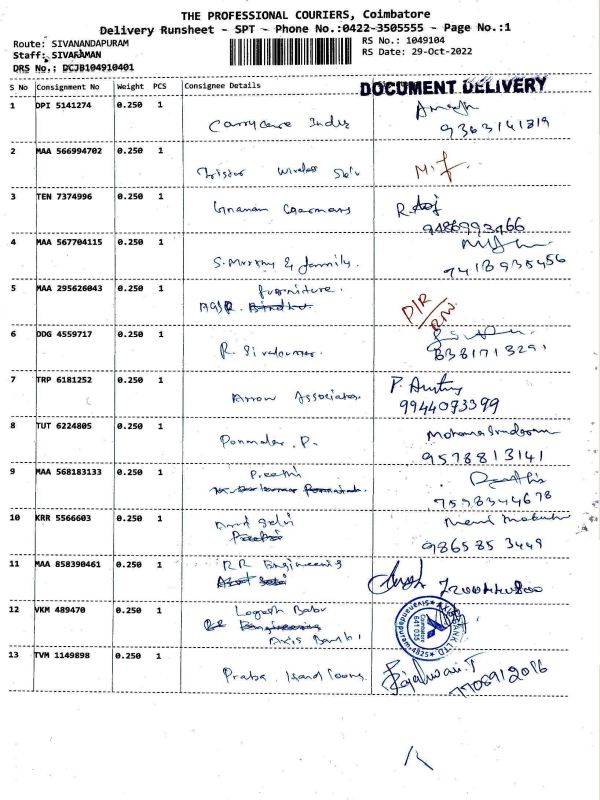 THE PROFESSIONAL COURIERS, Coimbatore
Delivery Runsheet - SPT - Phone No.:0422-3505555 - Page No.:1
Route: SIVANANDAPURAM
RS No.: 1049104
Staff: SIVARAMAN
RS Date: 29-Oct-2022
DRS No.: DCJB104910401
S No Consignment No Weight PCS Consignee Details DOCUMENT DELIVERY
1 DPI 5141274 0.250 1
Carrycare India 9363141819
2 MAA 566994702 0.250 1
Wireless M.f.
3 TEN 7374996 0.250 1
Gnanam R.
9486993466
4 MAA 567704115 0.250 1
S. Murthy & family. 7418935456
5 MAA 295626043 0.250 1
furniture.
AGR. P/R
6 DDG 4559717 0.250 1
R. Sivakumar. 8381713291
7 TRP 6181252 0.250 1 P.
Arrow Associates 9944073399
8 TUT 6224805 0.250 1
Ponmalar. P. 9578813141
9 MAA 568183133 0.250 1
Preethi
7598344678
10 KRR 5566603 0.250 1
Selvi
9865853449
11 MAA 858390461 0.250 1
RR Engineering
12 VKM 489470 0.250 1
Logesh Babu
Axis Bank
AXIS BANK LTD. Sivanandapuram-4825 Coimbatore 641 035
13 TVM 1149898 0.250 1
Praba. Rajalwari.T
7708912016